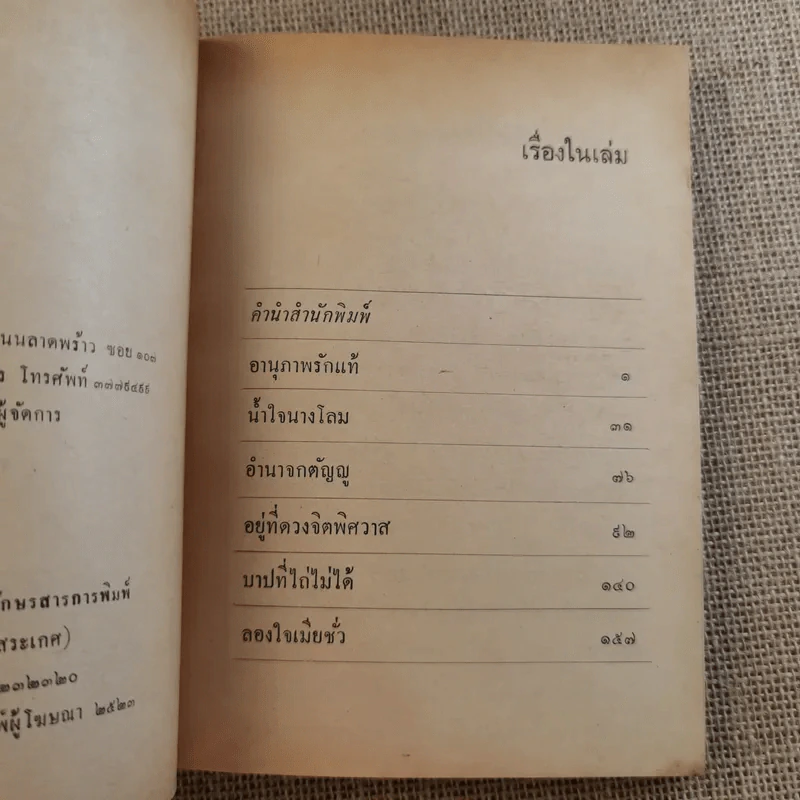 นนลาดพร้าว ซอย ๑๐๗
ร โทรศัพท์ ๓๗๗๙๔๙๙
ผู้จัดการ
ักษรสารการพิมพ์
สระเกศ)
๒๓๒๓๒๐
พ์ผู้โฆษณา ๒๕๒๓
เรื่องในเล่ม
คำนำสำนักพิมพ์
อานุภาพรักแท้ ๑
น้ำใจนางโลม ๓๑
อำนาจกตัญญู ๗๖
อยู่ที่ดวงจิตพิศวาส ๙๒
บาปที่ไถ่ไม่ได้ ๑๔๐
ลองใจเมียชั่ว ๑๕๗